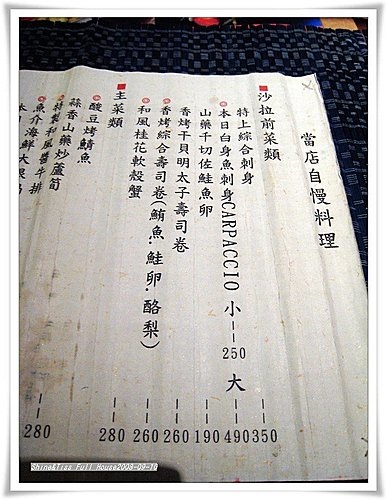 當店自慢料理
沙拉前菜類
特上綜合刺身 350
本日白身魚刺身CARPACCIO 小--250 大--490
山藥千切佐鮭魚卵 190
香烤干貝明太子壽司卷 260
香烤綜合壽司卷(鮪魚.鮭卵.酪梨) 260
和風桂花軟殼蟹 280
主菜類
酸豆烤鯖魚
蒜香山藥炒蘆筍
特製和風醬牛排
280